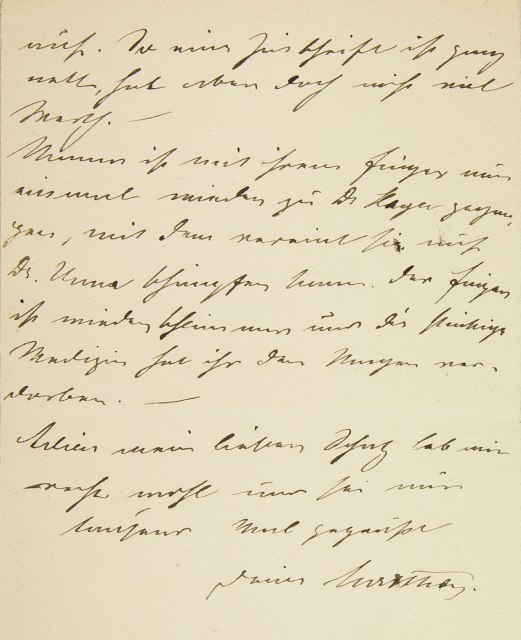 So eine Zeitschrift ist ganz
nett, hat aber doch nicht viel
Werth. —
Mama ist mit ihrem Finger nun
einmal wieder zu Dr gegan-
gen, mit dem vereint sie auf
Dr. Unna schimpfen kann. Der Finger
ist wieder schlimmer und die
Medizin hat ihr den Magen ver-
dorben. —
Adieu mein lieber Schatz leb mir
recht wohl und sei mir
tausend Mal gegrüßt
Deine Martha.